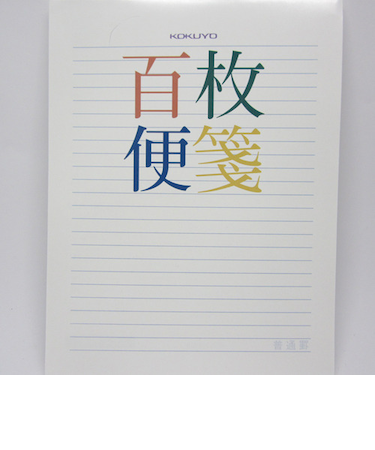 KOKUYO
百枚
便箋
普通罫